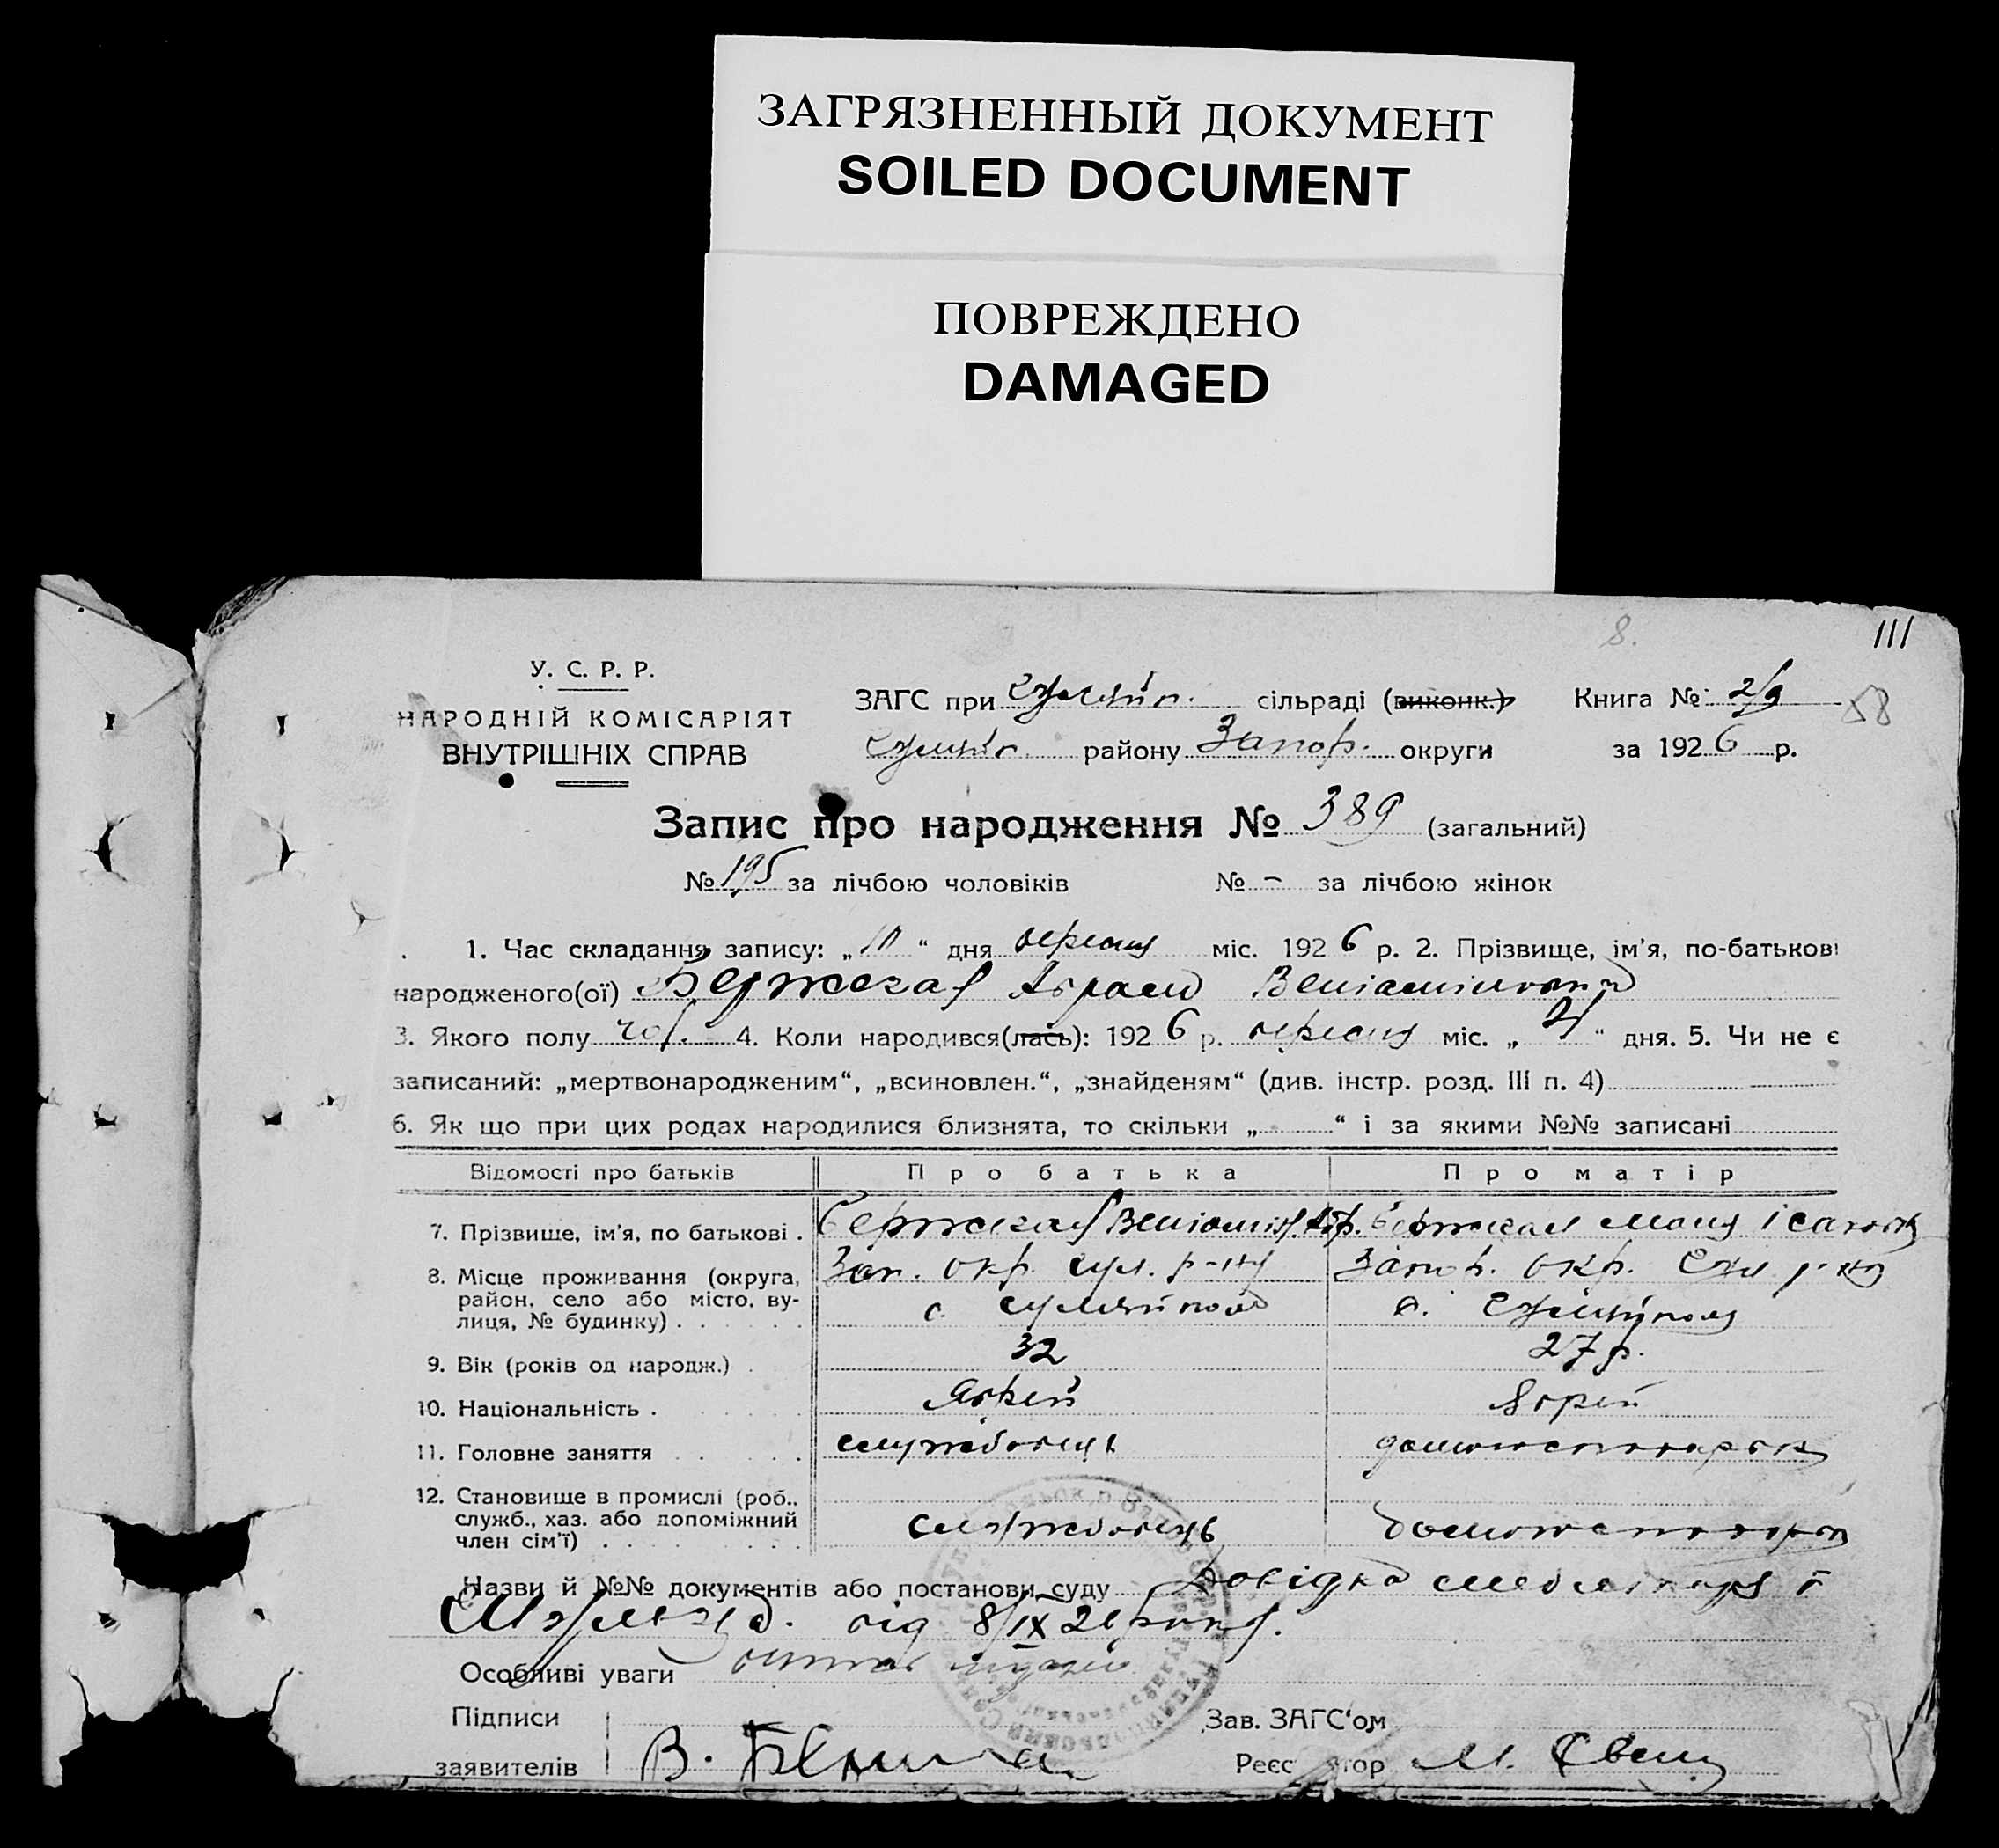 ЗАГРЯЗНЕННЫЙ ДОКУМЕНТ
SOILED DOCUMENT
ПОВРЕЖДЕНО
DAMAGED
8.
111
У. С. Р. Р.
НАРОДНІЙ КОМІСАРІЯТ
ВНУТРІШНІХ СПРАВ
ЗАГС при сільраді (виконк.) Книга № 2/9 58
району Запор. округи за 1926 р.
Запис про народження № 389 (загальний)
№ 195 за лічбою чоловіків № – за лічбою жінок
1. Час складання запису: „10“ дня вересня міс. 1926 р. 2. Прізвище, ім'я, по-батькові
народженого(ої) Абрам Веніамінович
3. Якого полу чол. 4. Коли народився(лась): 1926 р. вересня міс. „ “ дня. 5. Чи не є
записаний: „мертвонародженим“, „всиновлен.“, „знайденям“ (див. інстр. розд. III п. 4)
6. Як що при цих родах народилися близнята, то скільки „ “ і за якими №№ записані
Відомості про батьків Про батька Про матір
7. Прізвище, ім'я, по батькові . Веніамін
8. Місце проживання (округа, Зап. окр. Гул. р-ну Запор. окр. Гул. р-ну
район, село або місто, ву-
лиця, № будинку) . с. Гуляйполе с. Гуляйполе
9. Вік (років од народж.) . 32 27 р.
10. Національність . Яврей Яврей
11. Головне заняття службовець домогосподарка
12. Становище в промислі (роб.,
служб., хаз. або допоміжний службовець домогосподарка
член сім'ї)
Назви й №№ документів або постанови суду Довідка
від 8/IX 26 року.
Особливі уваги
Підписи Зав. ЗАГС'ом
заявителів В. Реєстратор М.